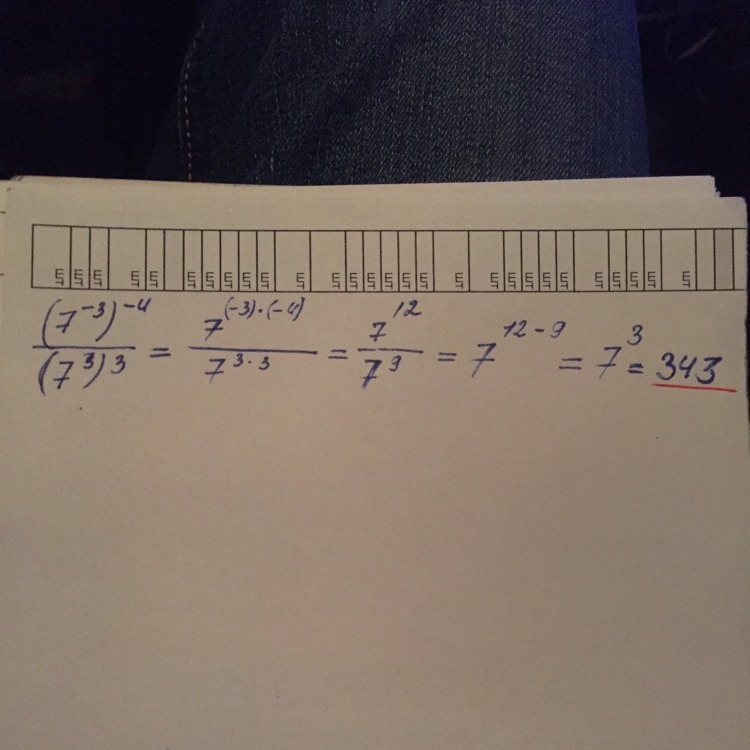 (7⁻³)⁻⁴/(7³)³ = 7⁽⁻³⁾·⁽⁻⁴⁾/7³·³ = 7¹²/7⁹ = 7¹²⁻⁹ = 7³ = 343